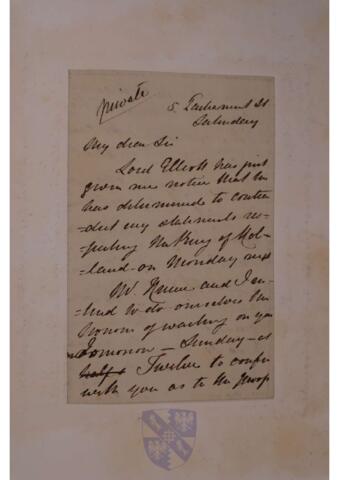 private
5 Parliament St
Saturday
My dear Sir
Lord Elliott has just
given me notice that he
has determined to contra
=dict my statements res
=pecting the King of Hol
=land on Monday next
Mr. and I in
=tend to do ourselves the
honour of waiting on you
Tomorrow — Sunday — at
half Twelve to confer
with you as to the